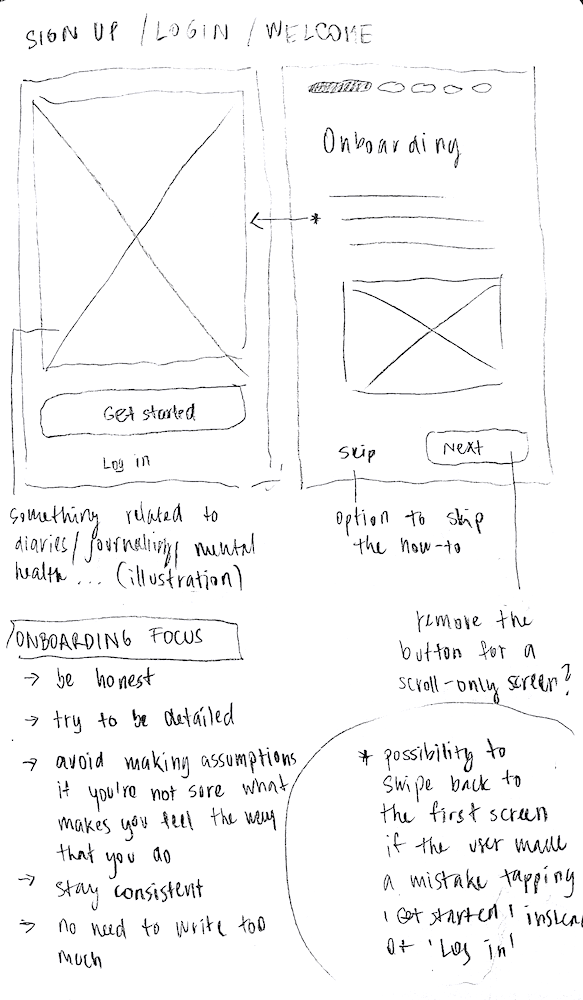 SIGN UP / LOGIN / WELCOME
Get started
Log in
Onboarding
Skip
Next
something related to
diaries/journaling/mental
health... (illustration)
option to skip
the how-to
remove the
button for a
scroll-only screen?
ONBOARDING FOCUS
→ be honest
→ try to be detailed
→ avoid making assumptions
if you're not sure what
makes you feel the way
that you do
→ stay consistent
→ no need to write too
much
* possibility to
swipe back to
the first screen
if the user made
a mistake tapping
'Get started' instea
of 'Log in'